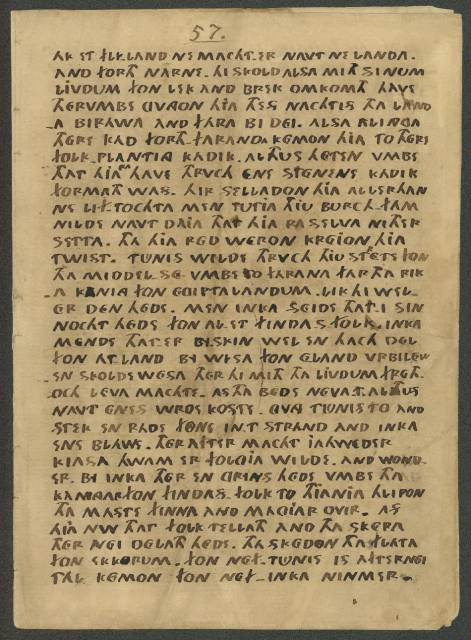 57.
AK ET FLILAND NE MACHT.ER NAVT NE LANDA.
AND FORTH NARNE. HI SKOLD ALSA MITH SINUM
LIVDUM FON LEK AND BREK OMKOMTH HAVE
THERVMBE GVNGON HIA THES NACHTIS THA LAND
A BIRAWA AND FARA BI DEI. ALSA FLINGA
THERE KAD FORTH. FARANDA KEMON HIA TO THERE
FOLK-PLANTING KADIK. ALTHUS HETEN VMBE
THAT HIARA HAVE THRVCH ENE STENENE KADIK
FORMATH WAS. HIR SELLADON HIA ALLERHAN
NE LIFTOCHTA MEN TUTIA THIU BURCH-FAM
NILDE NAVT DAIA THAT HIA RA SELVA NITHER
SETTA. THA HIA RED WERON KREION HIA
TWIST. TUNIS WILDE THRVCH THIU STRETE FON
THA MIDDEL.SE VMBE TO FARANA FAR THA RIK
A KANING FON EGIPTALANDUM. LIK HI WEL
ER DEN HEDE. MEN INKA SEIDE THAT.I SIN
NOCHT HEDE FON AL.ET FINDAS FOLK. INKA
MENDE THAT.ER BYSKIN WEL EN HACH DEL
FON ATLAND BY WISA FON ELAND VRBILEW
EN SKOLDE WESA THER HI MITH THA LIVDUM FRETH.
OCH LEVA MACHTE. AS THA BEDE NEVA.T.ALTHUS
NAVT ENES WRDE KOSTE. GVNG TUNIS TO AND
STEK EN RADE FONE IN.T STRAND AND INKA
ENE BLAWE. THER AFTER MACHT IAHWEDER
KIASA HWAM ER FOLGIA WILDE. AND WOND-
ER. BI INKA THER EN GRINS HEDE VMBE THA
KANINGAR FON FINDAS FOLK TO THIANIA HLIPON
THA MASTE FINNA AND MAGIAR OVIR. AS
HIA NW THAT FOLK TELLATH AND THA SKEPA
THER NEI DELATH HEDE. THA SKEDON THA FLATA
FON EKKORUM. FON NEF-TUNIS IS AFTERNEI
TAL KEMON FON NEF-INKA NINMER.